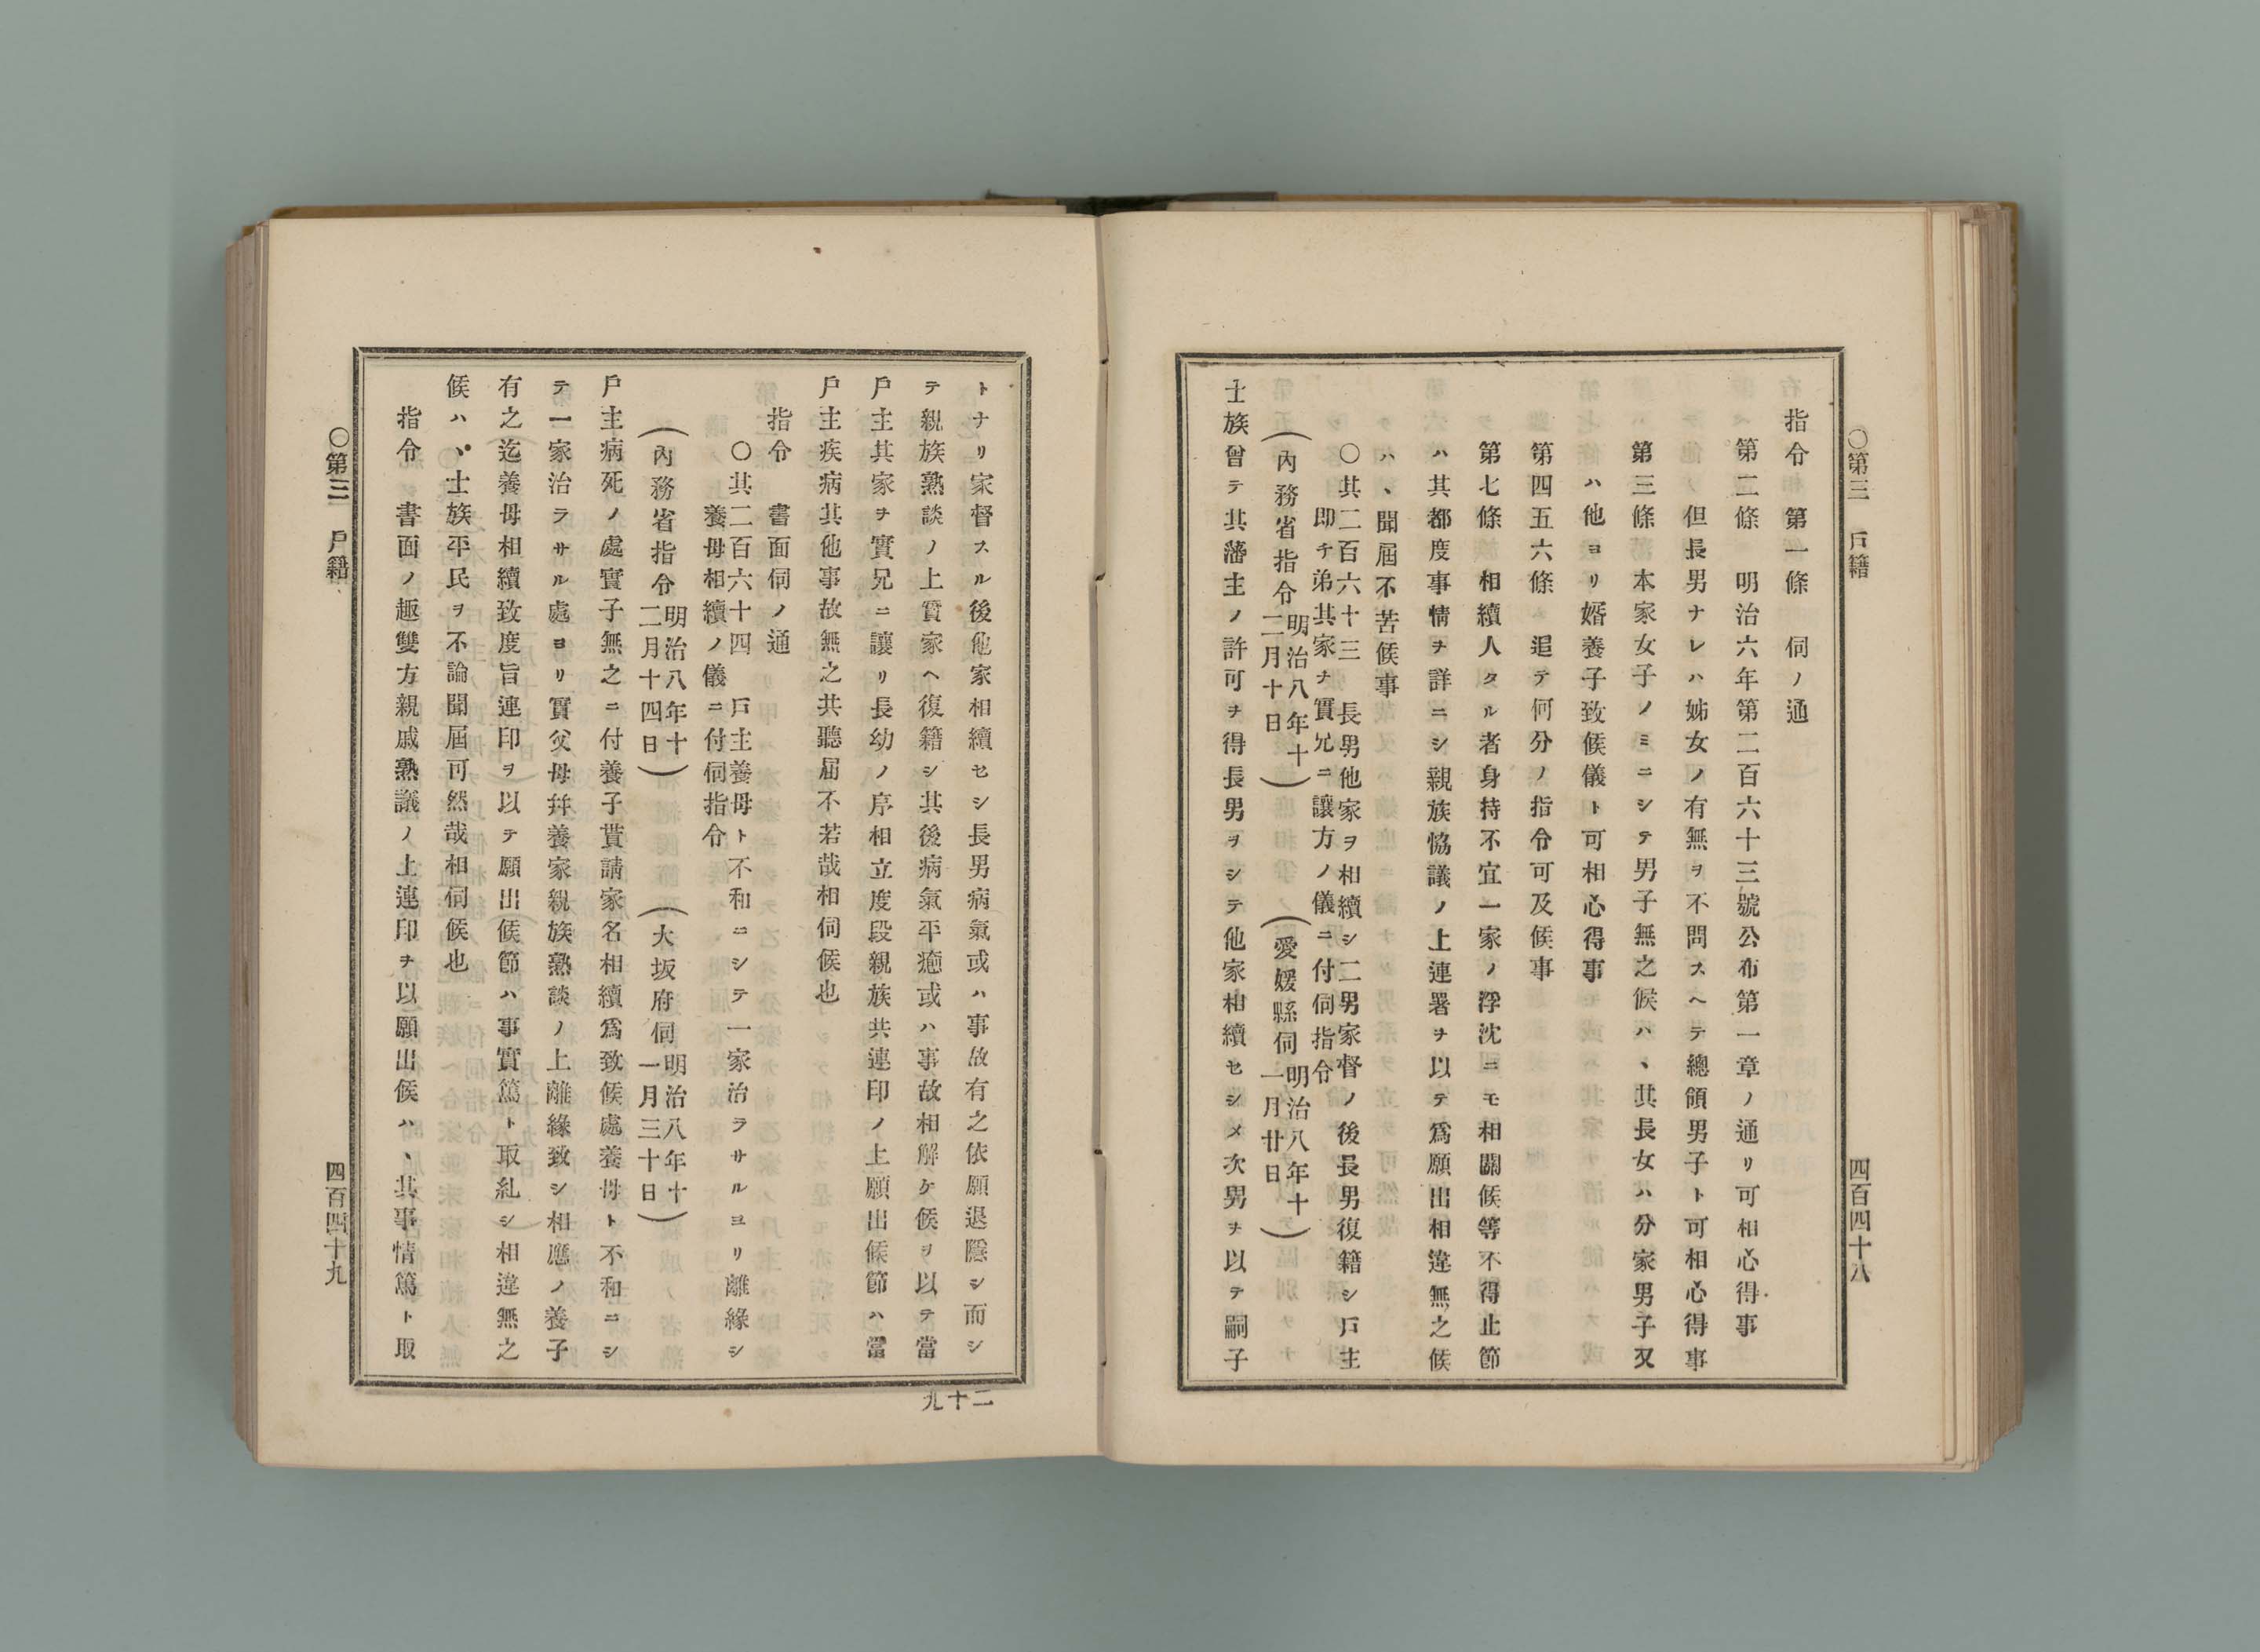 ○第三　戸籍
四百四十八
指令　第一條　伺ノ通
第二條　明治六年第二百六十三號公布第一章ノ通リ可相心得事
但長男ナレハ姊女ノ有無ヲ不問スヘテ總領男子ト可相心得事
第三條　本家女子ノミニシテ男子無之候ハヽ其長女ハ分家男子又
ハ他ヨリ婿養子致候儀ト可相心得事
第四五六條　追テ何分ノ指令可及候事
第七條　相續人タル者身持不宜一家ノ浮沈ニモ相關候等不得止節
ハ其都度事情ヲ詳ニシ親族恊議ノ上連署ヲ以テ爲願出相違無之候
ハヽ聞屆不苦候事
○其二百六十三　長男他家ヲ相續シ二男家督ノ後長男復籍シ戸主
即チ弟其家ヲ實兄ニ讓方ノ儀ニ付伺指令
（內務省指令明治八年十二月十日）（愛媛縣伺明治八年十一月廿日）
士族曾テ其藩主ノ許可ヲ得長男ヲシテ他家相續セシメ次男ヲ以テ嗣子
トナリ家督スル後他家相續セシ長男病氣或ハ事故有之依願退隱シ而シ
テ親族熟談ノ上實家ヘ復籍シ其後病氣平癒或ハ事故相解ケ候ヲ以テ當
戸主其家ヲ實兄ニ讓リ長幼ノ序相立度段親族共連印ノ上願出候節ハ當
戸主疾病其他事故無之共聽屆不若哉相伺候也
指令　書面伺ノ通
○其二百六十四　戸主養母ト不和ニシテ一家治ラサルヨリ離緣シ
養母相續ノ儀ニ付伺指令
（內務省指令明治八年十二月十四日）（大坂府伺明治八年十一月三十日）
戸主病死ノ處實子無之ニ付養子貰請家名相續爲致候處養母ト不和ニシ
テ一家治ラサル處ヨリ實父母幷養家親族熟談ノ上離緣致シ相應ノ養子
有之迄養母相續致度旨連印ヲ以テ願出候節ハ事實篤ト取糺シ相違無之
候ハヽ士族平民ヲ不論聞屆可然哉相伺候也
指令　書面ノ趣雙方親戚熟議ノ上連印ヲ以願出候ハヽ其事情篤ト取
○第三　戸籍
四百四十九
二十九